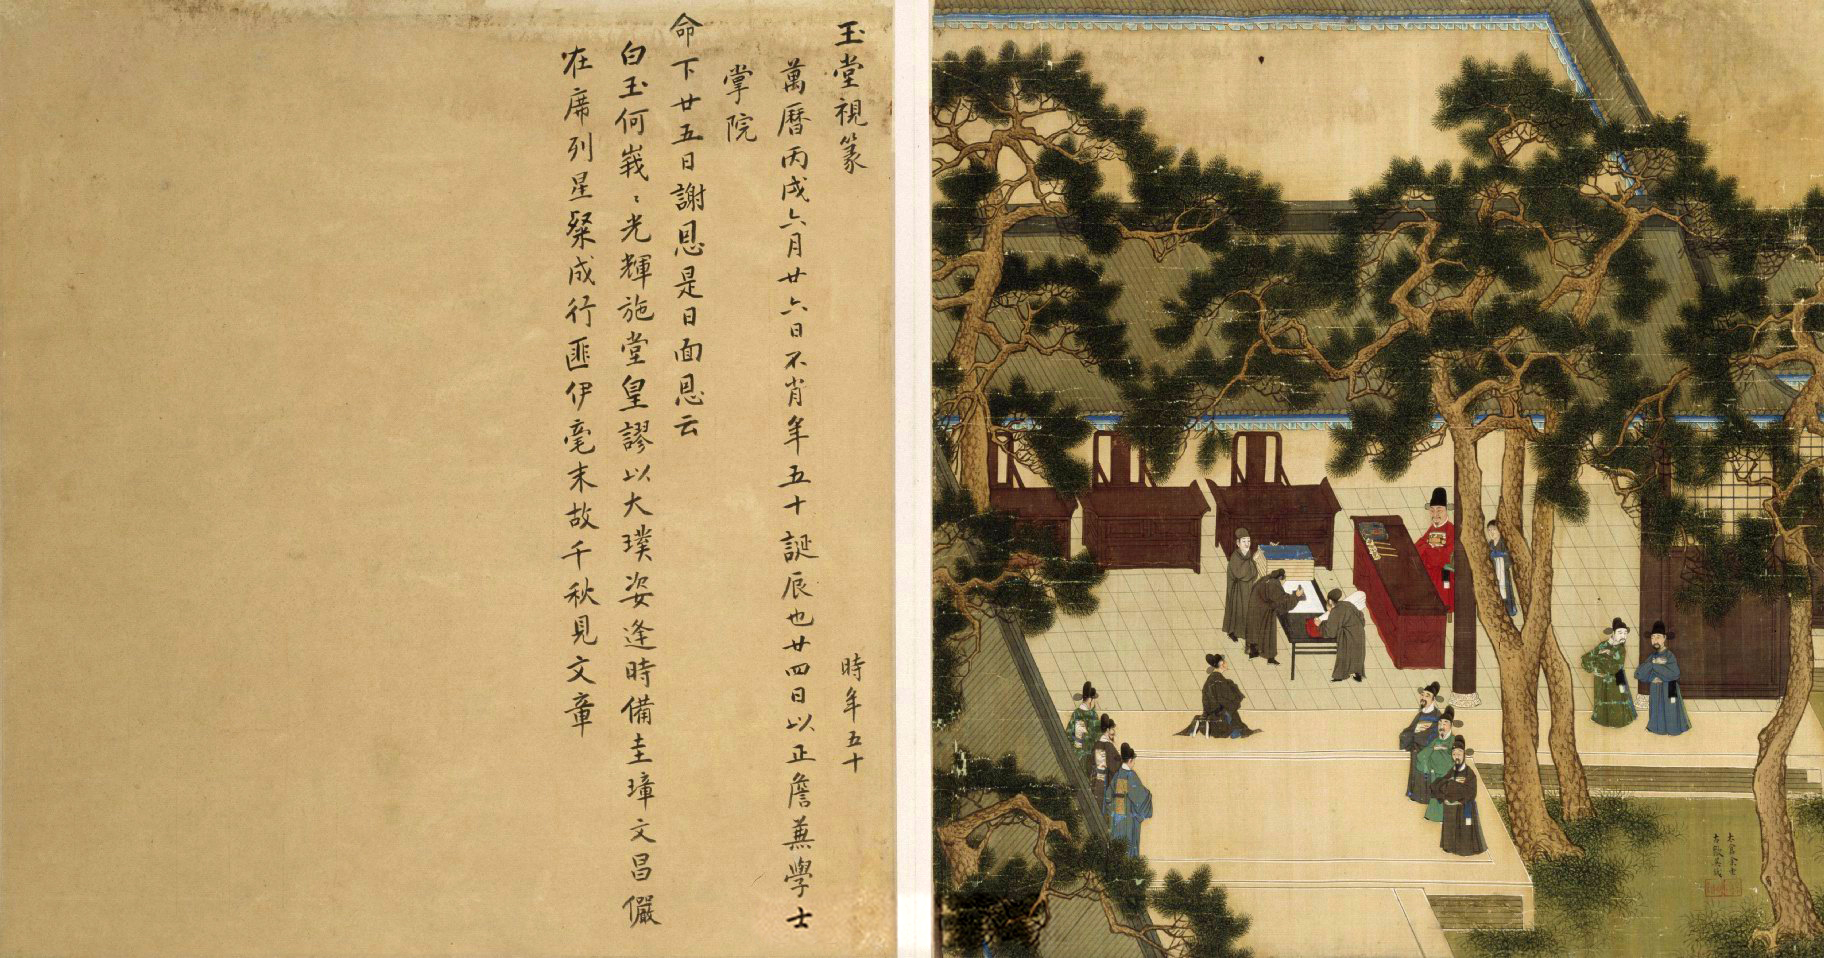 玉堂視篆 時年五十
萬曆丙戌六月廿六日不肖年五十誕辰也廿四日以正詹兼學士
掌院
命下廿五日謝恩是日面恩云
白玉何峩〻光輝施堂皇謬以大璞姿逢時備圭璋文昌儼
在席列星粲成行匪伊毫末故千秋見文章
太倉余壬
古歙吳鉞